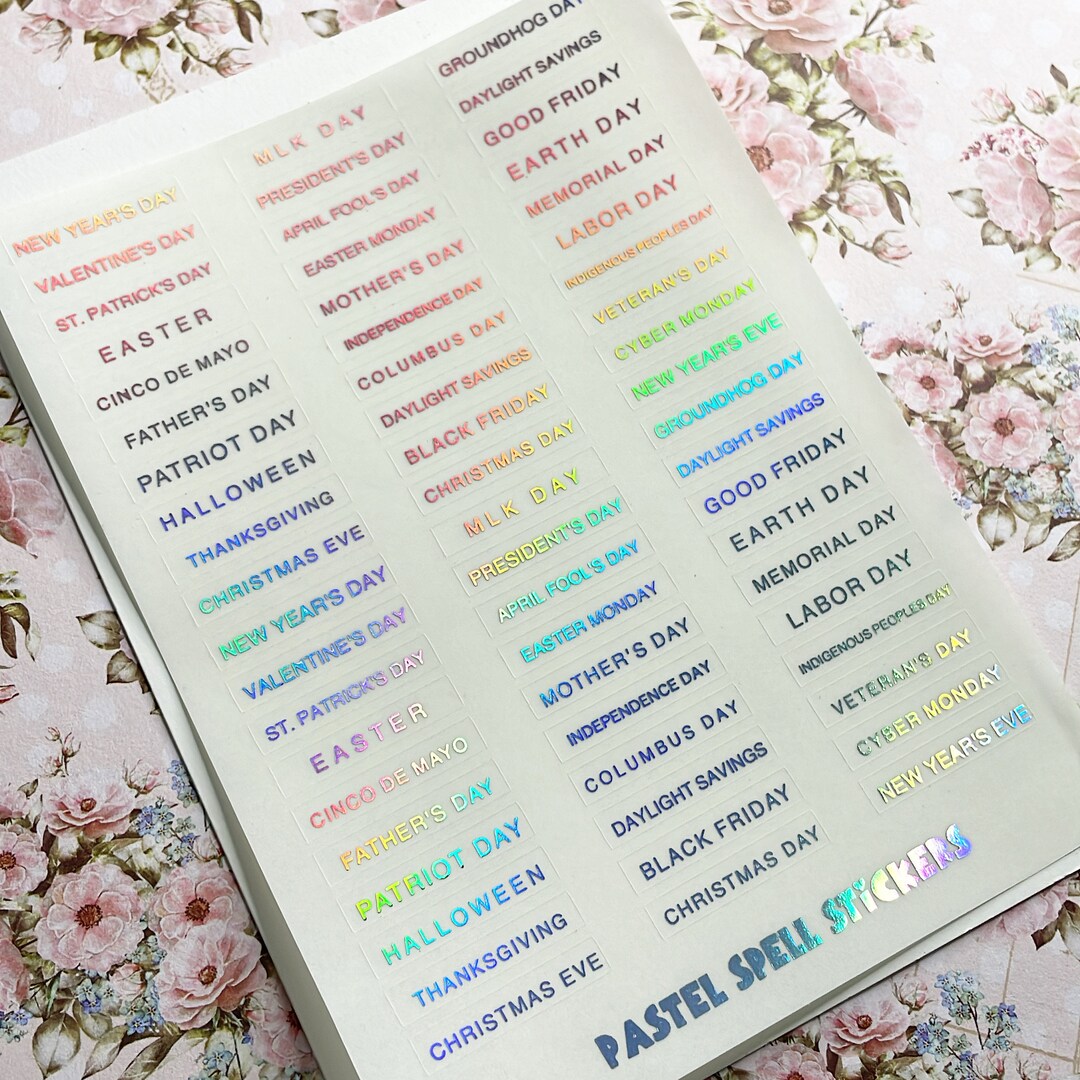 NEW YEAR'S DAY
VALENTINE'S DAY
ST. PATRICK'S DAY
EASTER
CINCO DE MAYO
FATHER'S DAY
PATRIOT DAY
HALLOWEEN
THANKSGIVING
CHRISTMAS EVE
NEW YEAR'S DAY
VALENTINE'S DAY
ST. PATRICK'S DAY
EASTER
CINCO DE MAYO
FATHER'S DAY
PATRIOT DAY
HALLOWEEN
THANKSGIVING
CHRISTMAS EVE
MLK DAY
PRESIDENT'S DAY
APRIL FOOL'S DAY
EASTER MONDAY
MOTHER'S DAY
INDEPENDENCE DAY
COLUMBUS DAY
DAYLIGHT SAVINGS
BLACK FRIDAY
CHRISTMAS DAY
MLK DAY
PRESIDENT'S DAY
APRIL FOOL'S DAY
EASTER MONDAY
MOTHER'S DAY
INDEPENDENCE DAY
COLUMBUS DAY
DAYLIGHT SAVINGS
BLACK FRIDAY
CHRISTMAS DAY
GROUNDHOG DAY
DAYLIGHT SAVINGS
GOOD FRIDAY
EARTH DAY
MEMORIAL DAY
LABOR DAY
INDIGENOUS PEOPLES DAY
VETERAN'S DAY
CYBER MONDAY
NEW YEAR'S EVE
GROUNDHOG DAY
DAYLIGHT SAVINGS
GOOD FRIDAY
EARTH DAY
MEMORIAL DAY
LABOR DAY
INDIGENOUS PEOPLES DAY
VETERAN'S DAY
CYBER MONDAY
NEW YEAR'S EVE
PASTEL SPELL STiCKERS